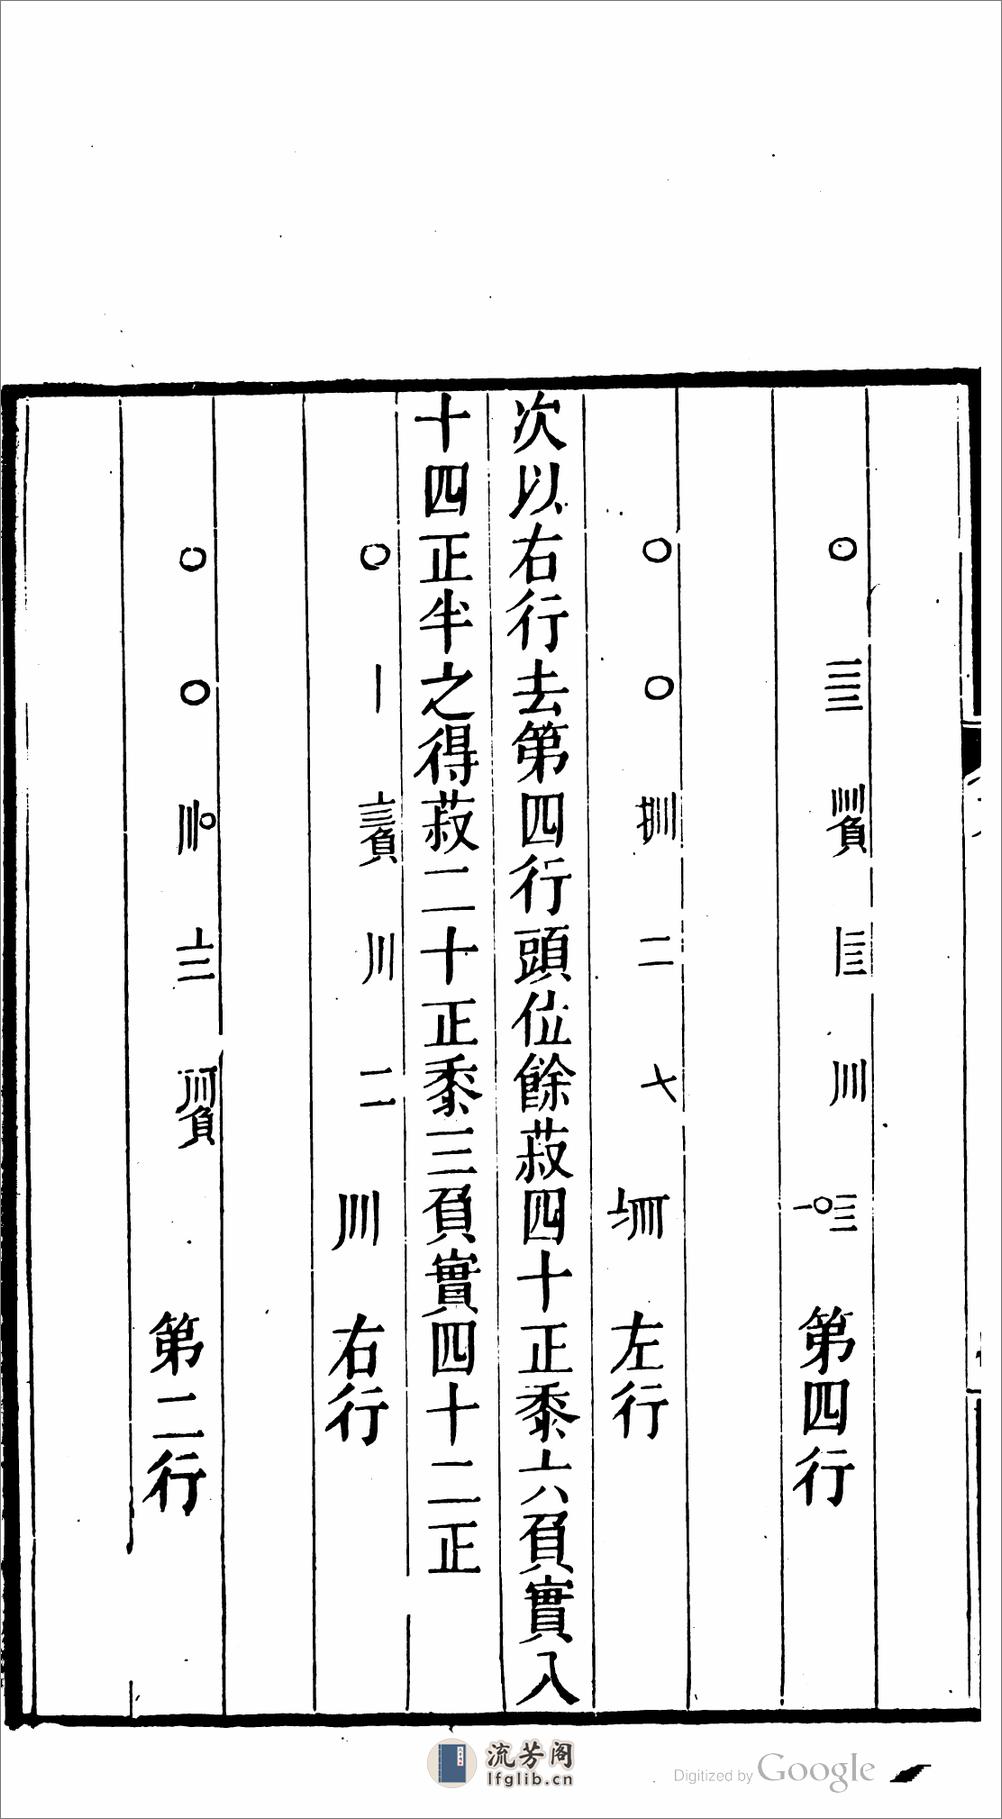 〇 𝍬 第四行
〇 〇 二 左行
次以右行去第四行頭位餘菽四十正黍六負實入
十四正半之得菽二十正黍三負實四十二正
〇 〡 〣 二 〣 右行
〇 〇 第二行
流芳阁
lfglib.cn
Digitized by Google